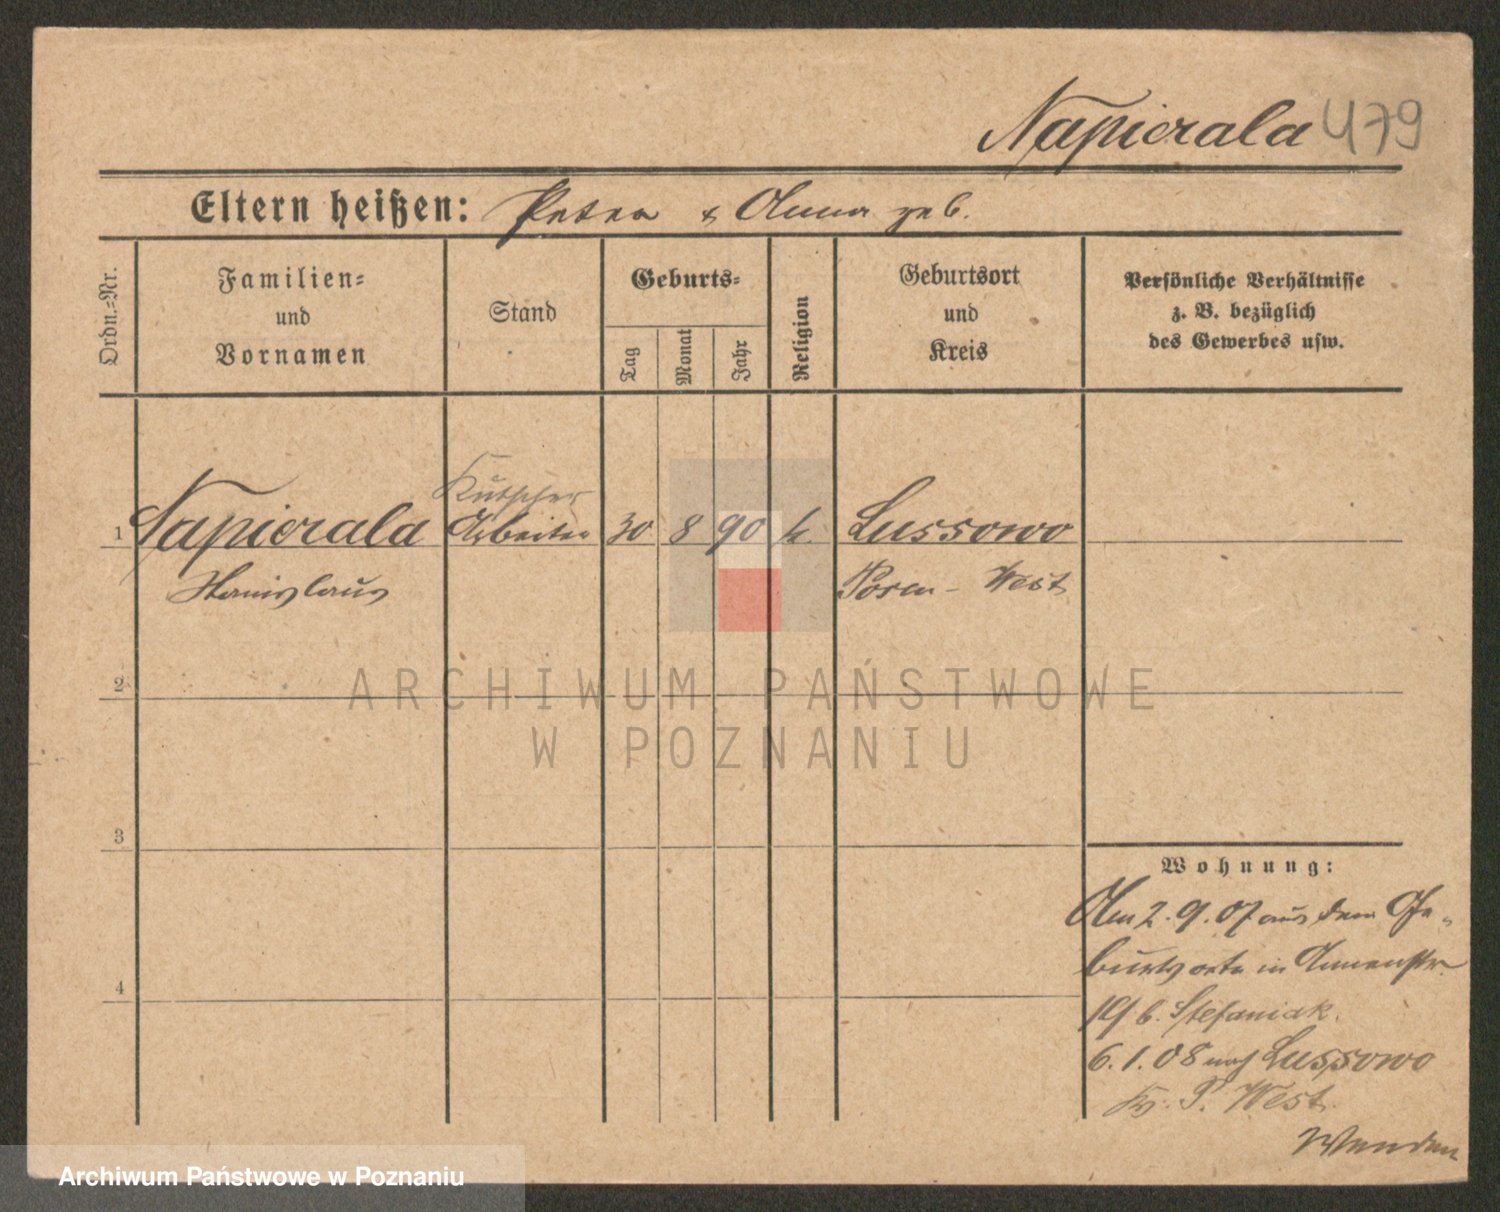 Napierala 479
Eltern heißen: Peter & Anna geb.
Ordn.=Nr.
Familien=
und
Vornamen
Stand
Geburts=
Tag
Monat
Jahr
Religion
Geburtsort
und
Kreis
Persönliche Verhältnisse
z. B. bezüglich
des Gewerbes usw.
Kutscher
1 Napierala Arbeiter 30 8 90 k. Lussowo
Stanislaus Posen - West
2
3
4
Wohnung:
Am 2.9.07 aus dem Ge-
burtsorte in Annenstr.
b. Stefaniak.
6.1.08 nach Lussowo
Kr. P. West.
Wenden
ARCHIWUM PAŃSTWOWE
W POZNANIU
Archiwum Państwowe w Poznaniu